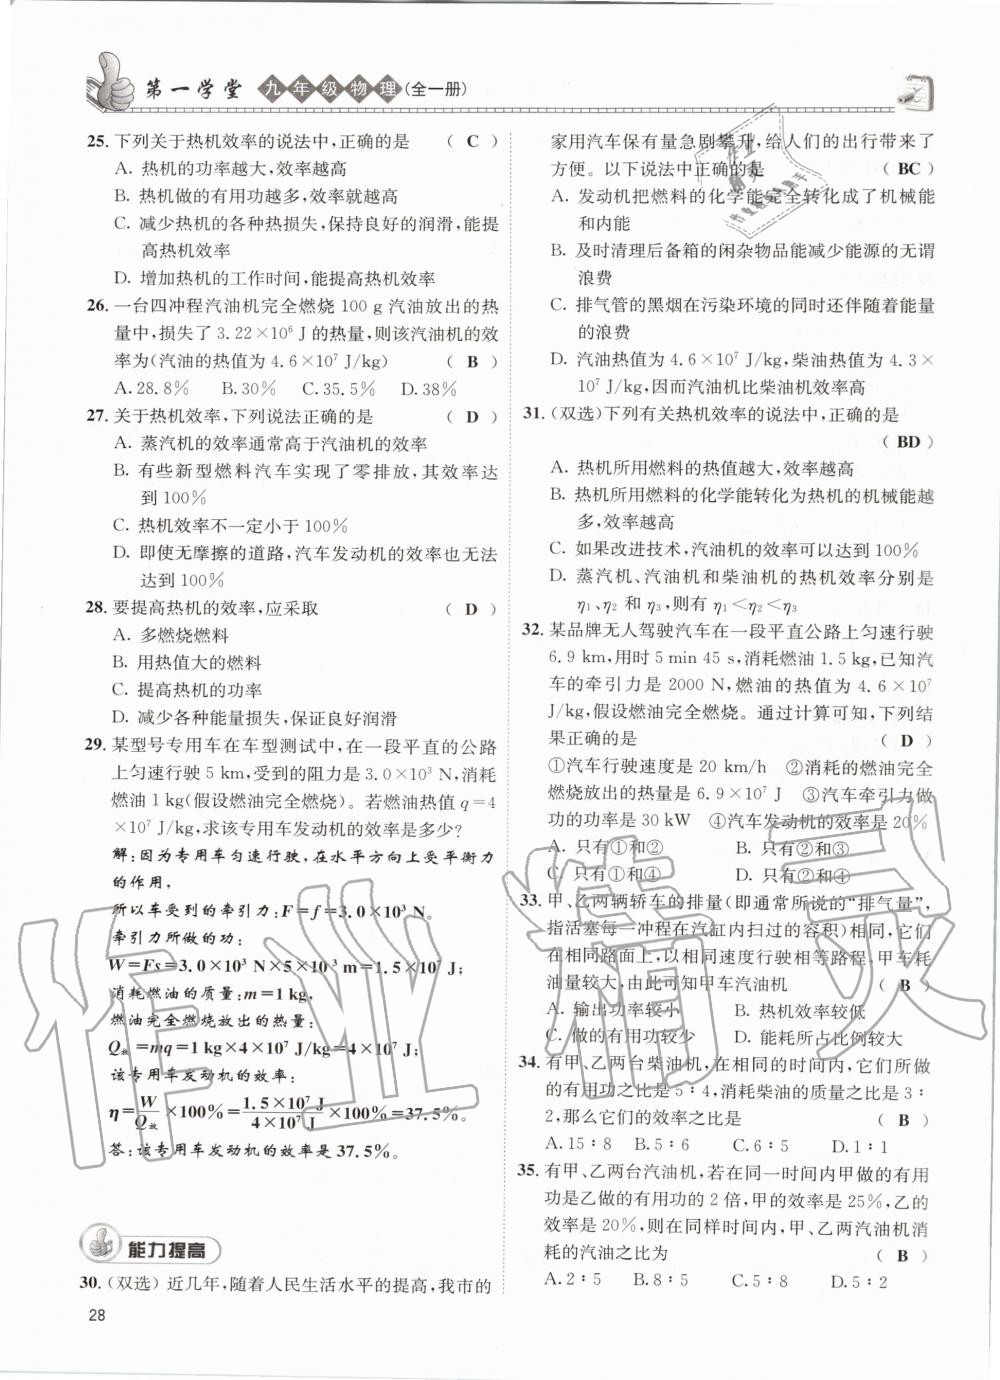 第一学堂 九年级物理(全一册)
25. 下列关于热机效率的说法中,正确的是 ( C )
A. 热机的功率越大,效率越高
B. 热机做的有用功越多,效率就越高
C. 减少热机的各种热损失,保持良好的润滑,能提
高热机效率
D. 增加热机的工作时间,能提高热机效率
26. 一台四冲程汽油机完全燃烧 100 g 汽油放出的热
量中,损失了 3.22×10⁶ J 的热量,则该汽油机的效
率为(汽油的热值为 4.6×10⁷ J/kg) ( B )
A. 28.8% B. 30% C. 35.5% D. 38%
27. 关于热机效率,下列说法正确的是 ( D )
A. 蒸汽机的效率通常高于汽油机的效率
B. 有些新型燃料汽车实现了零排放,其效率达
到 100%
C. 热机效率不一定小于 100%
D. 即使无摩擦的道路,汽车发动机的效率也无法
达到 100%
28. 要提高热机的效率,应采取 ( D )
A. 多燃烧燃料
B. 用热值大的燃料
C. 提高热机的功率
D. 减少各种能量损失,保证良好润滑
29. 某型号专用车在车型测试中,在一段平直的公路
上匀速行驶 5 km,受到的阻力是 3.0×10³ N,消耗
燃油 1 kg(假设燃油完全燃烧)。若燃油热值 q=4
×10⁷ J/kg,求该专用车发动机的效率是多少?
解:因为专用车匀速行驶,在水平方向上受平衡力
的作用,
所以车受到的牵引力:F=f=3.0×10³ N。
牵引力所做的功:
W=Fs=3.0×10³ N×5×10³ m=1.5×10⁷ J;
消耗燃油的质量:m=1 kg,
燃油完全燃烧放出的热量:
Q放=mq=1 kg×4×10⁷ J/kg=4×10⁷ J;
该专用车发动机的效率:
η=W/Q放×100%=1.5×10⁷ J/4×10⁷ J×100%=37.5%。
答:该专用车发动机的效率是 37.5%。
能力提高
30. (双选)近几年,随着人民生活水平的提高,我市的
28
家用汽车保有量急剧攀升,给人们的出行带来了
方便。以下说法中正确的是 ( BC )
A. 发动机把燃料的化学能完全转化成了机械能
和内能
B. 及时清理后备箱的闲杂物品能减少能源的无谓
浪费
C. 排气管的黑烟在污染环境的同时还伴随着能量
的浪费
D. 汽油热值为 4.6×10⁷ J/kg,柴油热值为 4.3×
10⁷ J/kg,因而汽油机比柴油机效率高
31. (双选)下列有关热机效率的说法中,正确的是
( BD )
A. 热机所用燃料的热值越大,效率越高
B. 热机所用燃料的化学能转化为热机的机械能越
多,效率越高
C. 如果改进技术,汽油机的效率可以达到 100%
D. 蒸汽机、汽油机和柴油机的热机效率分别是
η₁、η₂ 和 η₃,则有 η₁<η₂<η₃
32. 某品牌无人驾驶汽车在一段平直公路上匀速行驶
6.9 km,用时 5 min 45 s,消耗燃油 1.5 kg,已知汽
车的牵引力是 2000 N,燃油的热值为 4.6×10⁷
J/kg,假设燃油完全燃烧。通过计算可知,下列结
果正确的是 ( D )
①汽车行驶速度是 20 km/h ②消耗的燃油完全
燃烧放出的热量是 6.9×10⁷ J ③汽车牵引力做
功的功率是 30 kW ④汽车发动机的效率是 20%
A. 只有①和② B. 只有②和③
C. 只有①和④ D. 只有②和④
33. 甲、乙两辆轿车的排量(即通常所说的“排气量”,
指活塞每一冲程在汽缸内扫过的容积)相同,它们
在相同路面上,以相同速度行驶相等路程,甲车耗
油量较大,由此可知甲车汽油机 ( B )
A. 输出功率较小 B. 热机效率较低
C. 做的有用功较少 D. 能耗所占比例较大
34. 有甲、乙两台柴油机,在相同的时间内,它们所做
的有用功之比是 5∶4,消耗柴油的质量之比是 3∶
2,那么它们的效率之比是 ( B )
A. 15∶8 B. 5∶6 C. 6∶5 D. 1∶1
35. 有甲、乙两台汽油机,若在同一时间内甲做的有用
功是乙做的有用功的 2 倍,甲的效率是 25%,乙的
效率是 20%,则在同样时间内,甲、乙两汽油机消
耗的汽油之比为 ( B )
A. 2∶5 B. 8∶5 C. 5∶8 D. 5∶2
作业精灵